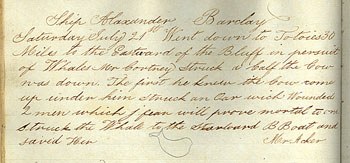 Ship Alexander Barclay
Saturday July 21st Went down to Tolois 30
Mile to the Eastward of the Bluff in persuit
of Whales Mr Cortney Struck a Calf the Cow
was down. The first he knew the Cow com
up under him Struck an Oar wich Wounded
2 men which I fear will prove mortal to on
Struck the Whale to the Starward B Boat and
saved Her
Mr Acker